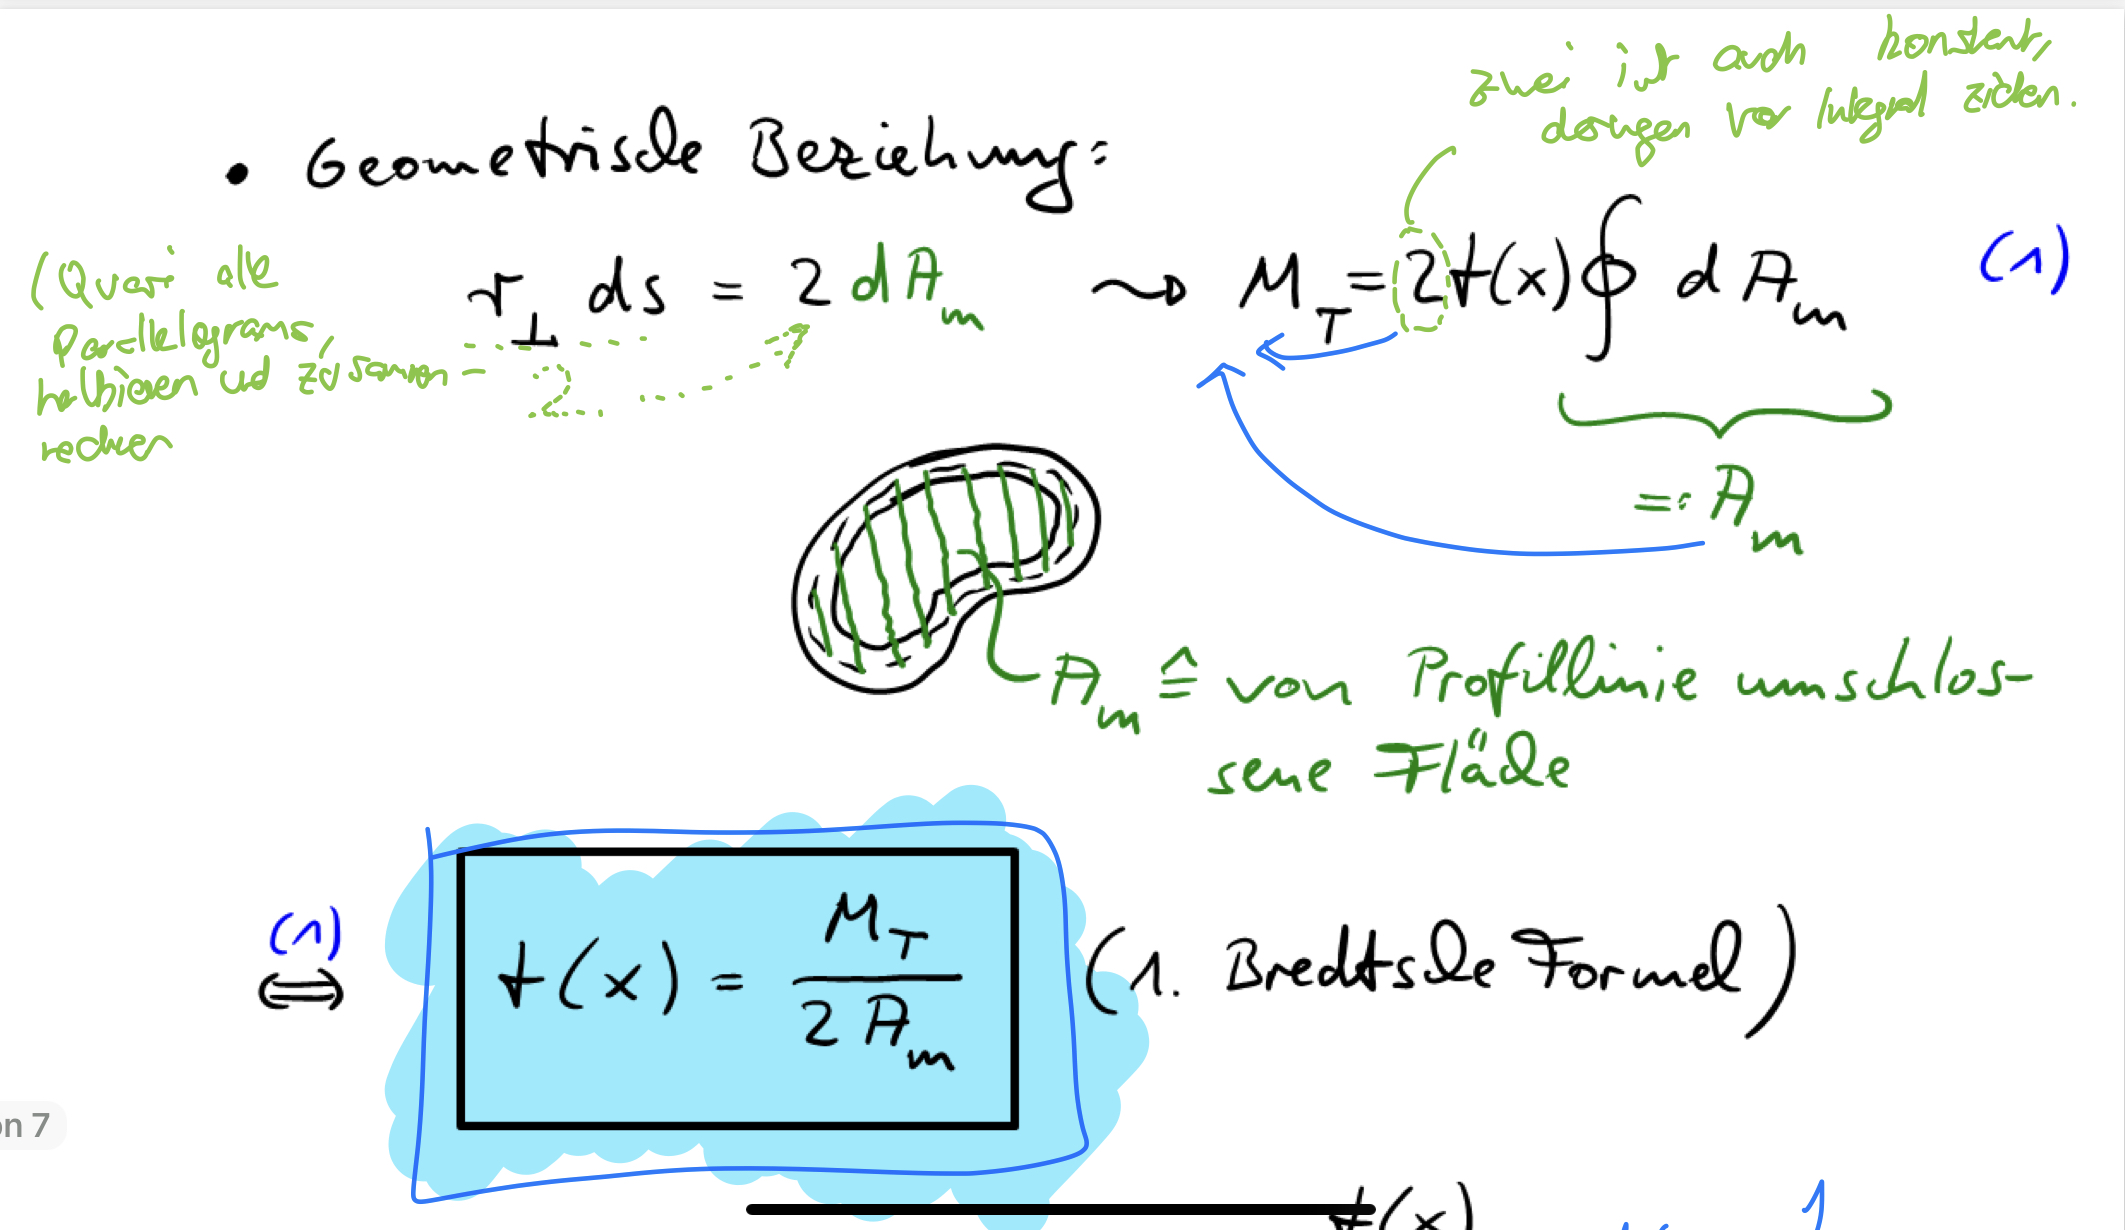 zwei ist auch konstant,
deswegen vor Integral ziehen.
• Geometrische Beziehung:
(Quasi alle
Parallelograms,
halbieren und zusammen-
rechnen
r⊥ ds = 2 dA_m ⇝ M_T = 2 t(x) ∮ dA_m (1)
2
=: A_m
A_m ≙ von Profillinie umschlos-
sene Fläche
(1)
⇔ t(x) = M_T / 2 A_m (1. Bredtsche Formel)
on 7
t(x)